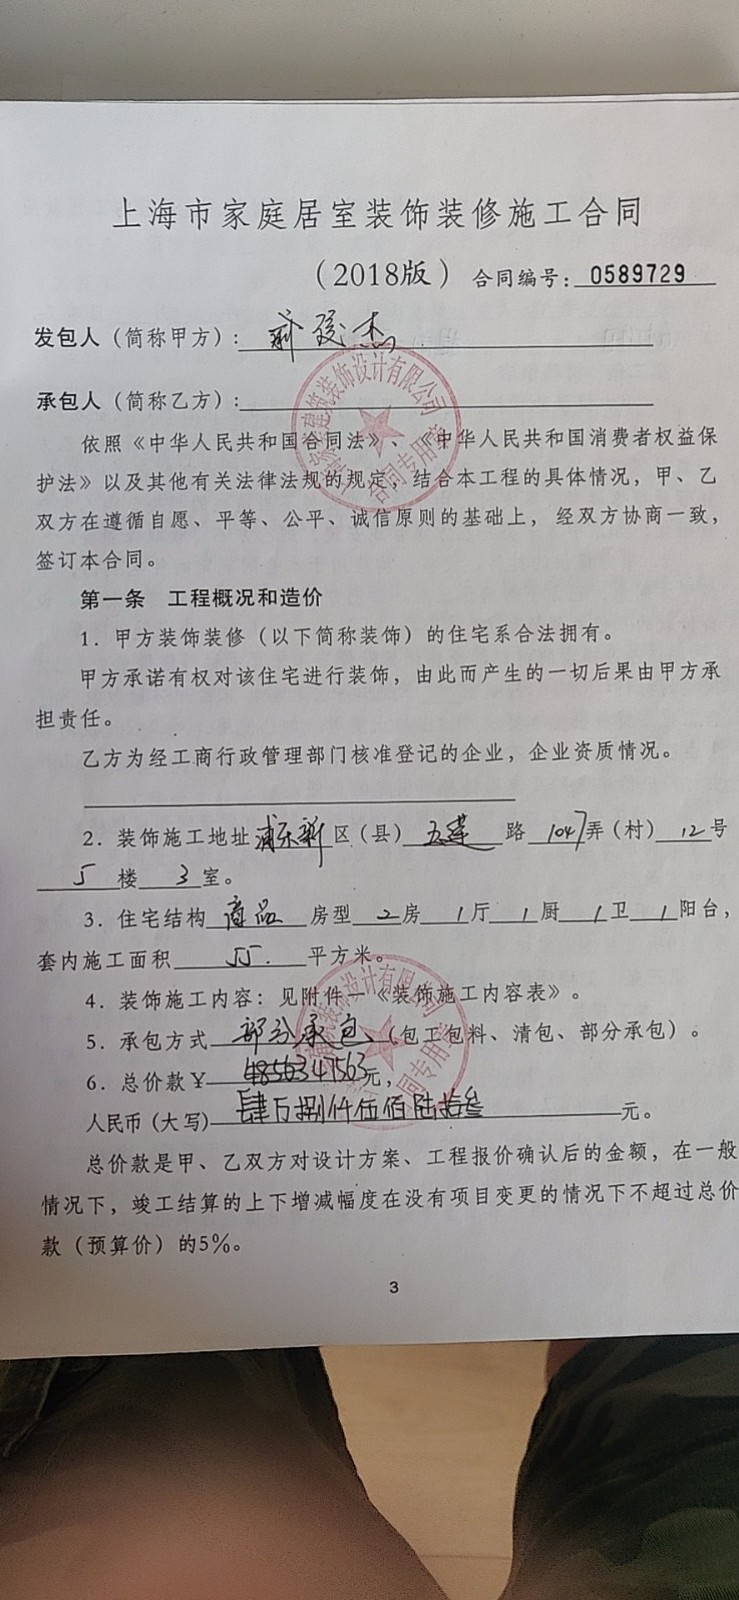 上海市家庭居室装饰装修施工合同
（2018版）合同编号：0589729
发包人（简称甲方）：
承包人（简称乙方）：
依照《中华人民共和国合同法》、《中华人民共和国消费者权益保
护法》以及其他有关法律法规的规定，结合本工程的具体情况，甲、乙
双方在遵循自愿、平等、公平、诚信原则的基础上，经双方协商一致，
签订本合同。
第一条　工程概况和造价
1．甲方装饰装修（以下简称装饰）的住宅系合法拥有。
甲方承诺有权对该住宅进行装饰，由此而产生的一切后果由甲方承
担责任。
乙方为经工商行政管理部门核准登记的企业，企业资质情况。
2．装饰施工地址浦东新区（县）五莲路1047弄（村）12号
5楼3室。
3．住宅结构商品房型2房1厅1厨1卫1阳台，
套内施工面积55.平方米。
4．装饰施工内容：见附件一《装饰施工内容表》。
5．承包方式部分承包（包工包料、清包、部分承包）。
6．总价款￥元，
人民币（大写）肆万捌仟伍佰陆拾叁元。
总价款是甲、乙双方对设计方案、工程报价确认后的金额，在一般
情况下，竣工结算的上下增减幅度在没有项目变更的情况下不超过总价
款（预算价）的5%。
3
建筑装饰设计有限公司
合同专用章
装饰设计有限公司
合同专用章